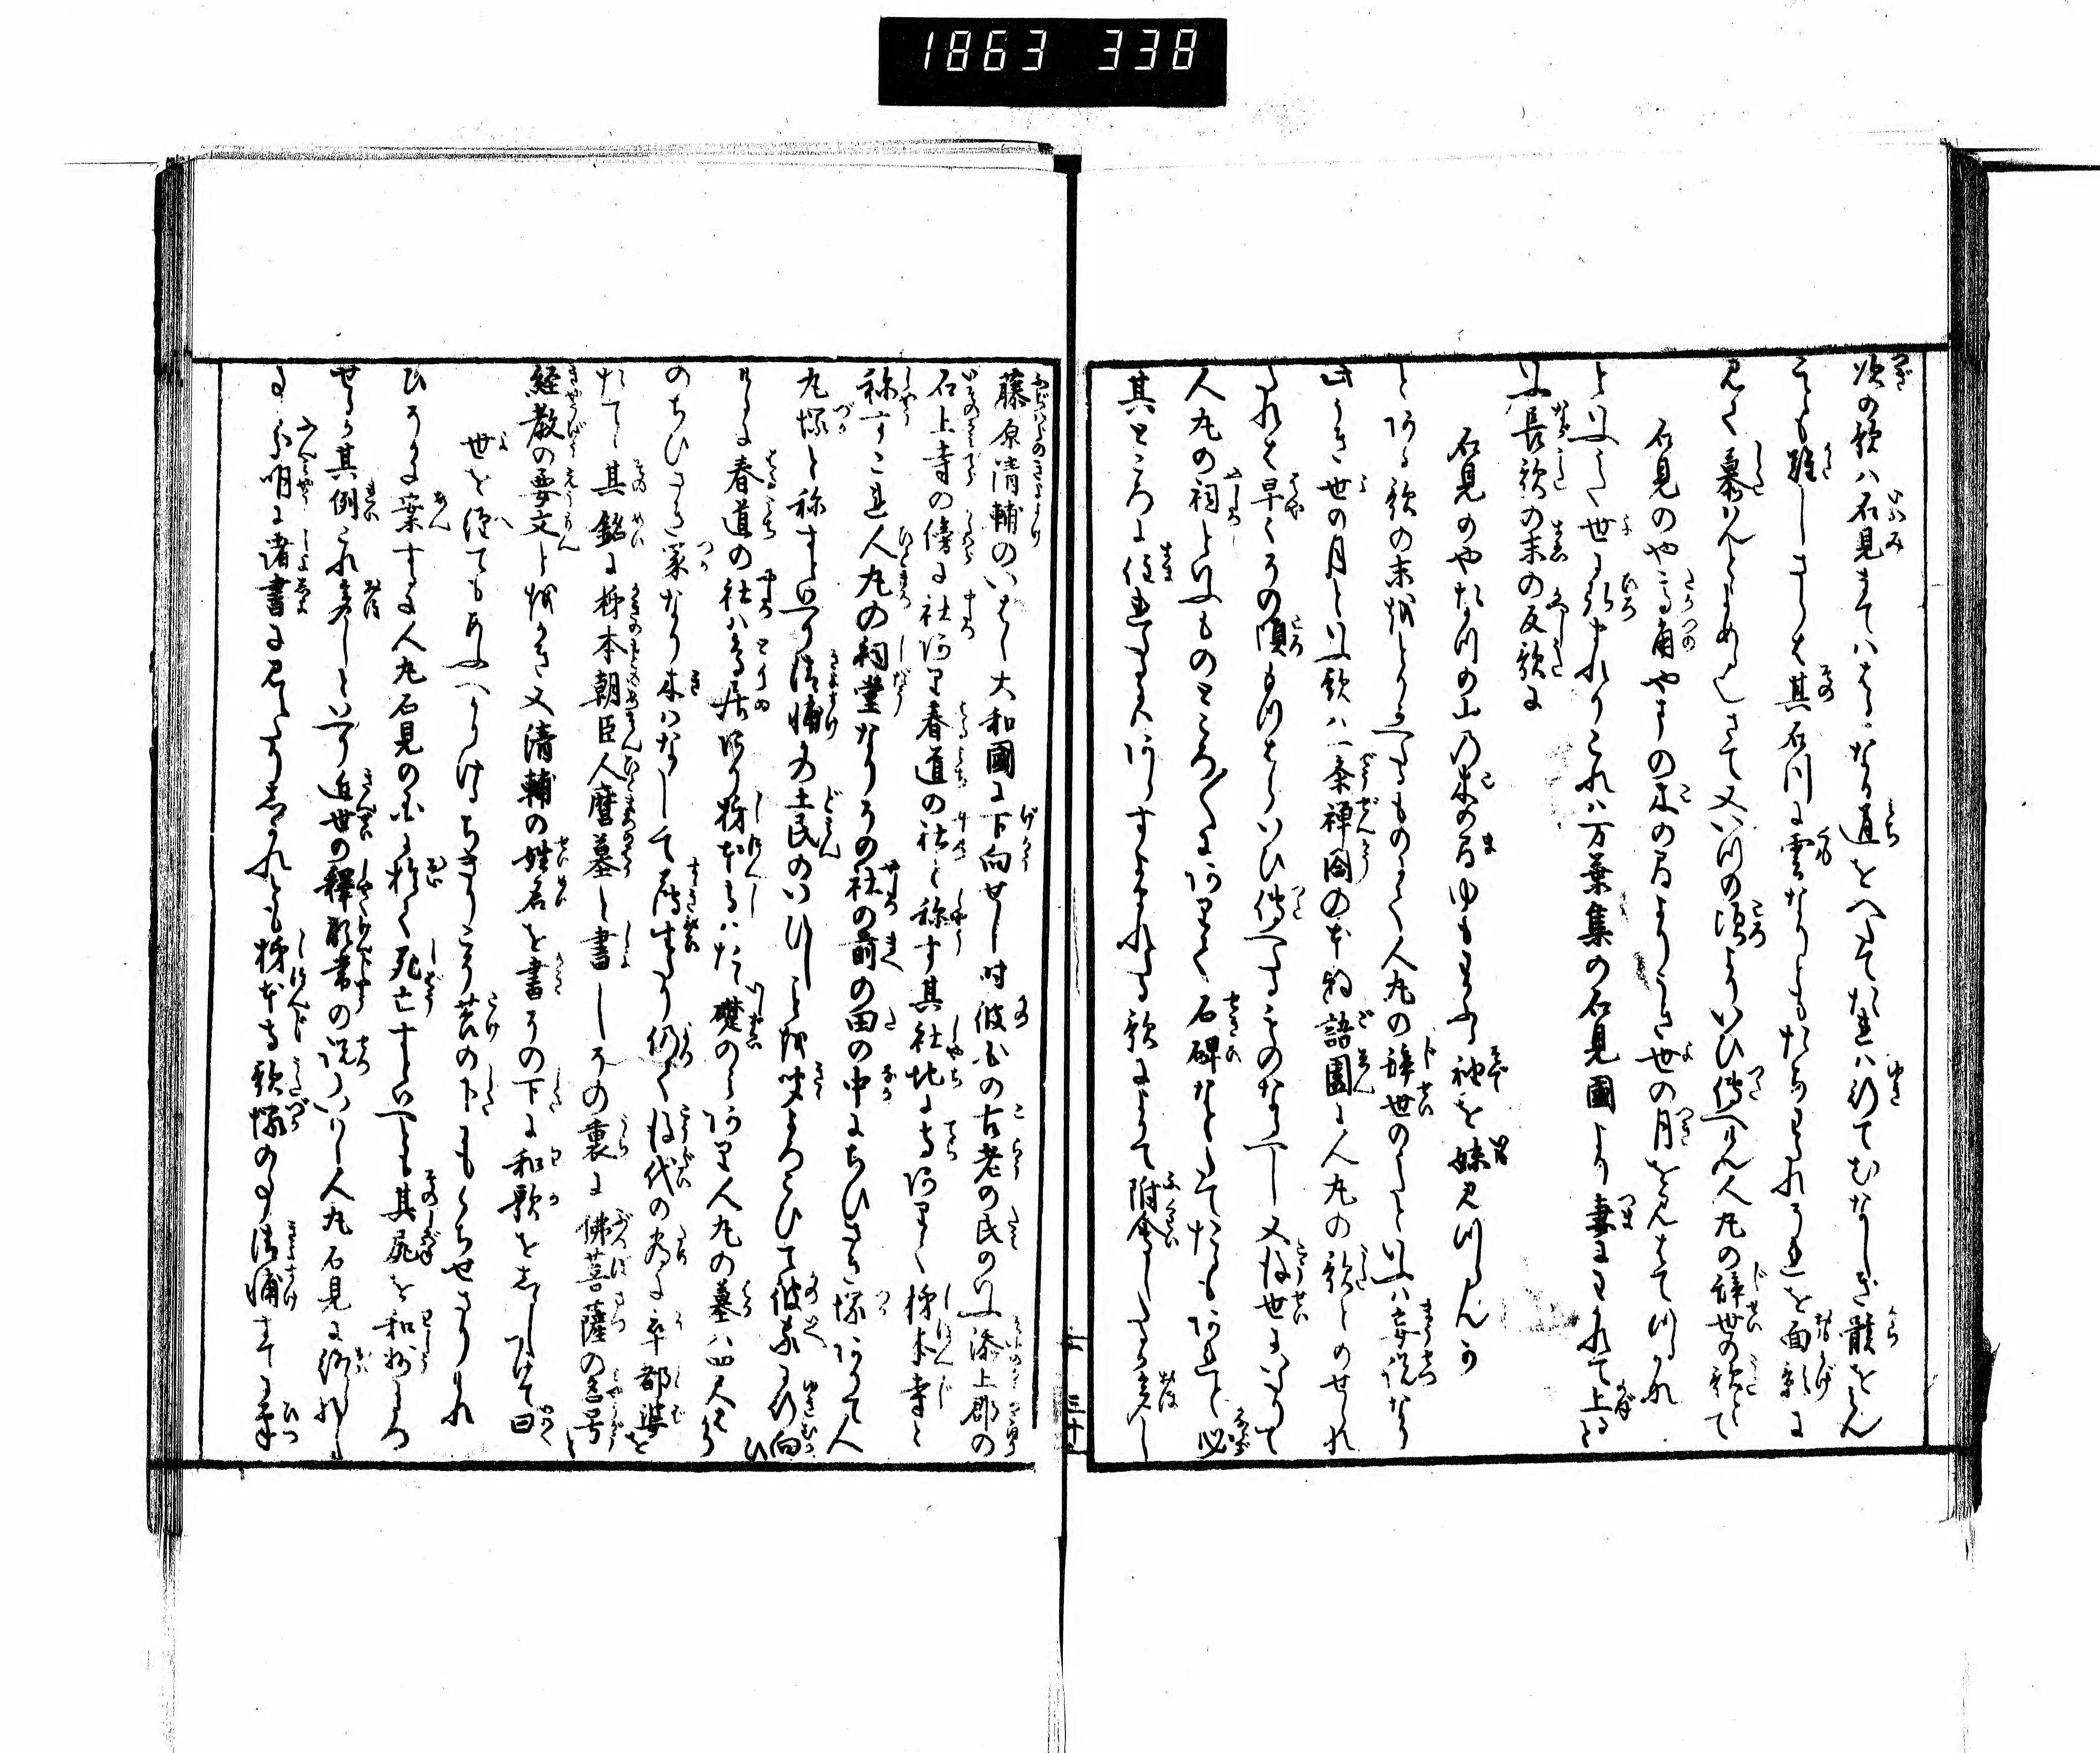 1863 338
次の歌ハ石見まてハはるかなる道をへたてたれハ行てむなしき骸をみん
ことも難しさらは其石川に雲なりともたちわたれそれを面影に
見て慕はんとよめるにやさて又いつの頃よりかいひ伝へけん人丸の辞世の歌とて
石見のや高角やまの木の間よりうき世の月を見はてつるかな
といふて世に弘まれりこれハ万葉集の石見國より妻にわかれて上ると
いふ長歌の末の反歌に
石見のやたかつの山の木の間ゆもわかふる袖を妹見つらんか
とある歌の末をとりかへたるものにて人丸の辞世のうたといふハ妄説なり
此うき世の月といふ歌ハ一条禅閤の本物語圖に人丸の歌とのせられ
たれは早くその頃もはらいひ伝へたるものなるへし又後世にいたりて
人丸の祠といふものところ〳〵にありて石碑なとたてたるもあれと必
其ところに住れたるにハあらすよまれたる歌によりて附會したる多し
藤原清輔のいはく大和國に下向せし時彼國の古老の民のいふ添上郡の
石上寺の傍に社あり春道の社と称す其社地に寺ありて柿本寺と
称すこれ人丸の祠堂なりその社の前の田の中にちひさき塚ありて人
丸塚と称すといへり清輔此土民のいひしことを聞よろこひて彼所に行向ひ
けるに春道の社ハ鳥居あり柿本寺ハたゝ礎のみあり人丸の墓ハ四尺はかり
のちひさき冢なり木ハなくして薄生たり仍て後代の為に卒都婆を
たてし其銘に柿本朝臣人麿墓と書しその裏に佛菩薩の名号
経教の要文とをかき又清輔の姓名を書その下に和歌をしるしつけて曰
世を経てもあふへかりけるちきりこそ苔の下にもくちせさりけれ
ひそかに案するに人丸石見の國に於て死亡すといへとも其屍を和州にうつ
せるか其例これ多しといへり近世の釋顕常の説にいはく人丸石見に終れし
事分明に諸書に見えたりしかれとも柿本寺歌塚の事清輔すてに筆
三十